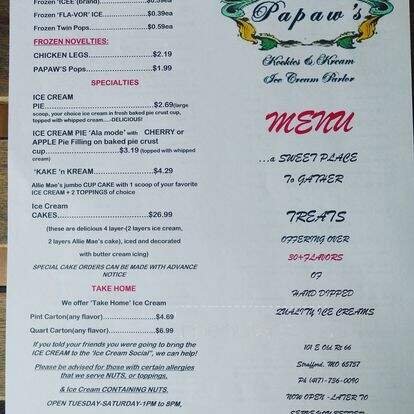 Frozen 'ICEE' (brand)..................$0.39ea
Frozen 'FLA-VOR' ICE...............$0.39ea
Frozen Twin Pops.......................$0.59ea
FROZEN NOVELTIES:
CHICKEN LEGS.......................$2.19
PAPAW'S Pops.........................$1.99
SPECIALTIES
ICE CREAM
PIE.............................................$2.69(large
scoop, your choice ice cream in fresh baked pie crust cup,
topped with whipped cream.....-DELICIOUS!
ICE CREAM PIE 'Ala mode' with CHERRY or
APPLE Pie Filling on baked pie crust
cup.............................$3.19 (topped with whipped
cream)
'KAKE 'n KREAM......................$4.29
Allie Mae's jumbo CUP CAKE with 1 scoop of your favorite
ICE CREAM + 2 TOPPINGS of choice
Ice Cream
CAKES....................................$26.99
(these are delicious 4 layer-(2 layers ice cream,
2 layers Allie Mae's cake), iced and decorated
with butter cream icing)
SPECIAL CAKE ORDERS CAN BE MADE WITH ADVANCE
NOTICE
TAKE HOME
We offer 'Take Home' Ice Cream
Pint Carton(any flavor)......................$4.69
Quart Carton(any flavor)...................$6.99
If you told your friends you were going to bring the
ICE CREAM to the 'Ice Cream Social", we can help!
Please be advised for those with certain allergies
that we serve NUTS, or toppings,
& Ice Cream CONTAINING NUTS.
OPEN TUESDAY-SATURDAY-1PM to 8PM,
Papaw's
Kookies & Kream
Ice Cream Parlor
MENU
...a SWEET PLACE
To GATHER
TREATS
OFFERING OVER
30+FLAVORS
OF
HAND DIPPED
QUALITY ICE CREAMS
101 E Old Rt 66
Strafford, MO 65757
Ph (417)-736-0090
NOW OPEN -LATER TO